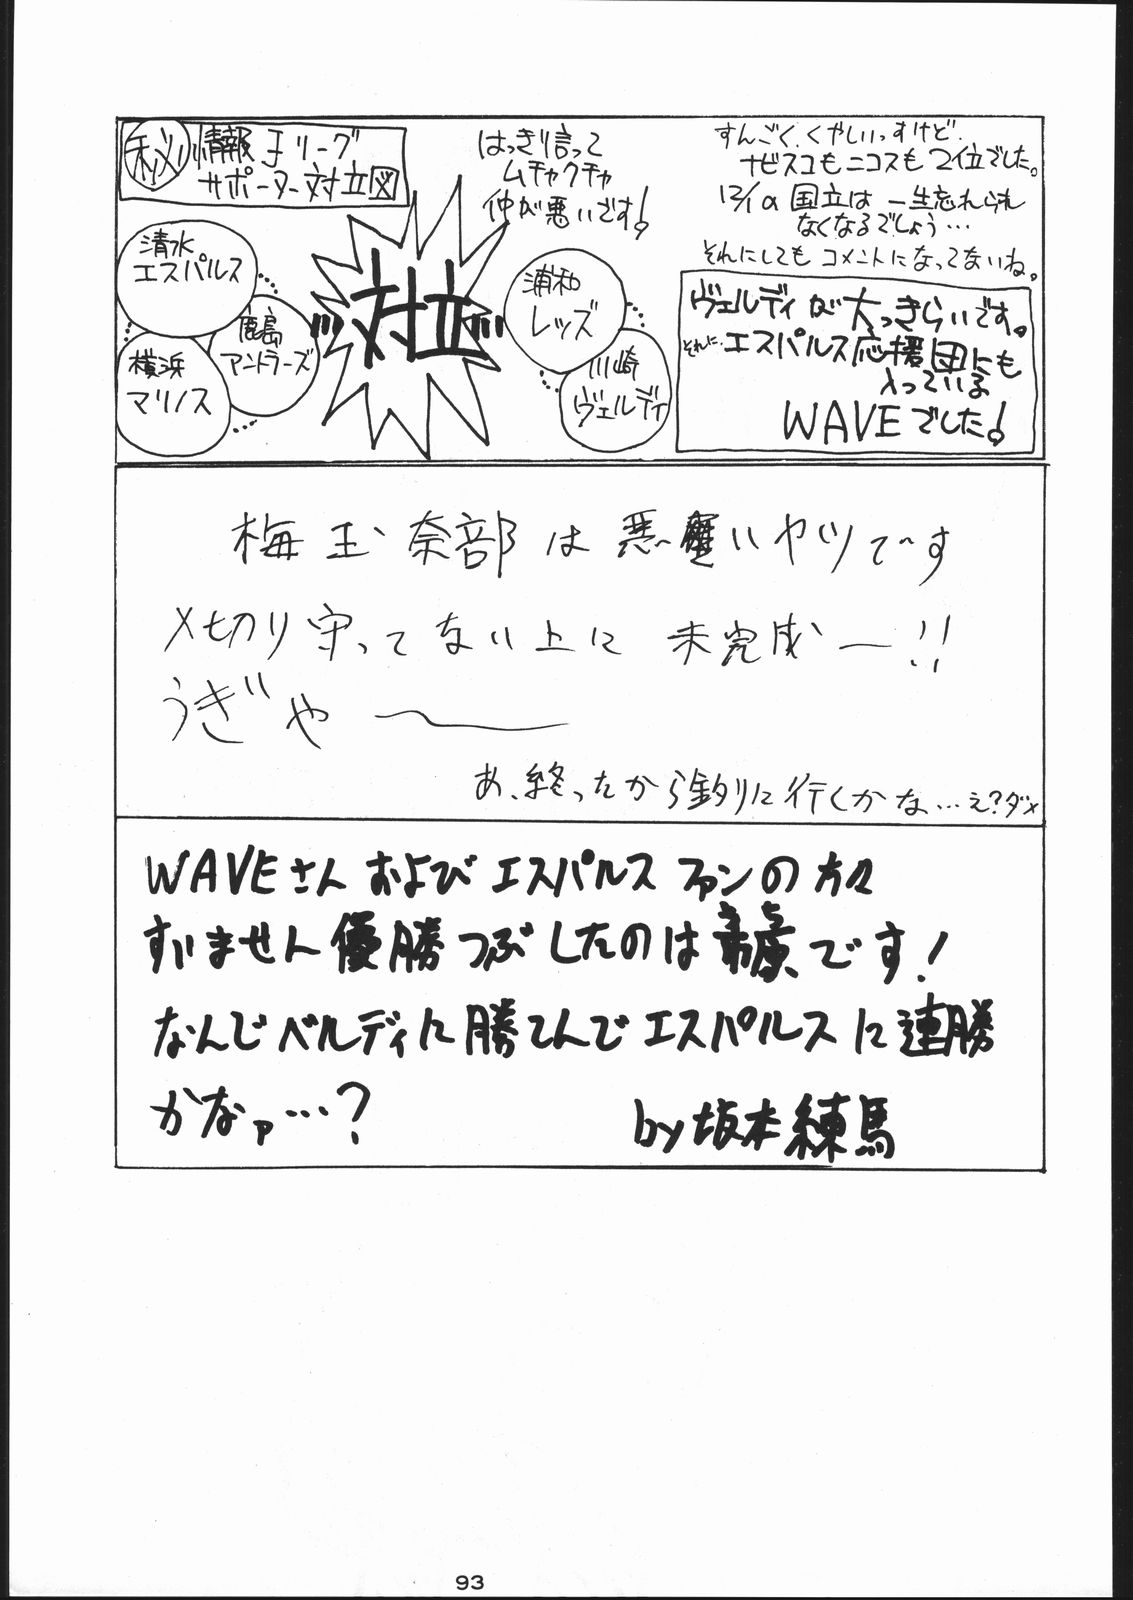 ㊙情報Jリーグ
サポーター対立図
清水
エスパルス
鹿島
アントラーズ
横浜
マリノス
対立
はっきり言って
ムチャクチャ
仲が悪いです!
浦和
レッズ
川崎
ヴェルディ
すんごくくやしいっすけど、
ナビスコもニコスも2位でした。
国立は一生忘れられ
なくなるでしょう…
それにしてもコメントになってないね。
ヴェルディが大っきらいです。
それに、エスパルス応援団にも
入っている
WAVEでした!
梅玉奈部は悪いヤツです
〆切り守ってない上に未完成ー!!
うぎゃー
あ、終ったから釣りに行くかな…え?ダメ
WAVEさんおよびエスパルスファンの方々
すいません優勝つぶしたのは です!
なんでベルディに勝てんでエスパルスに連勝
かなァ…?
by坂本練馬
93